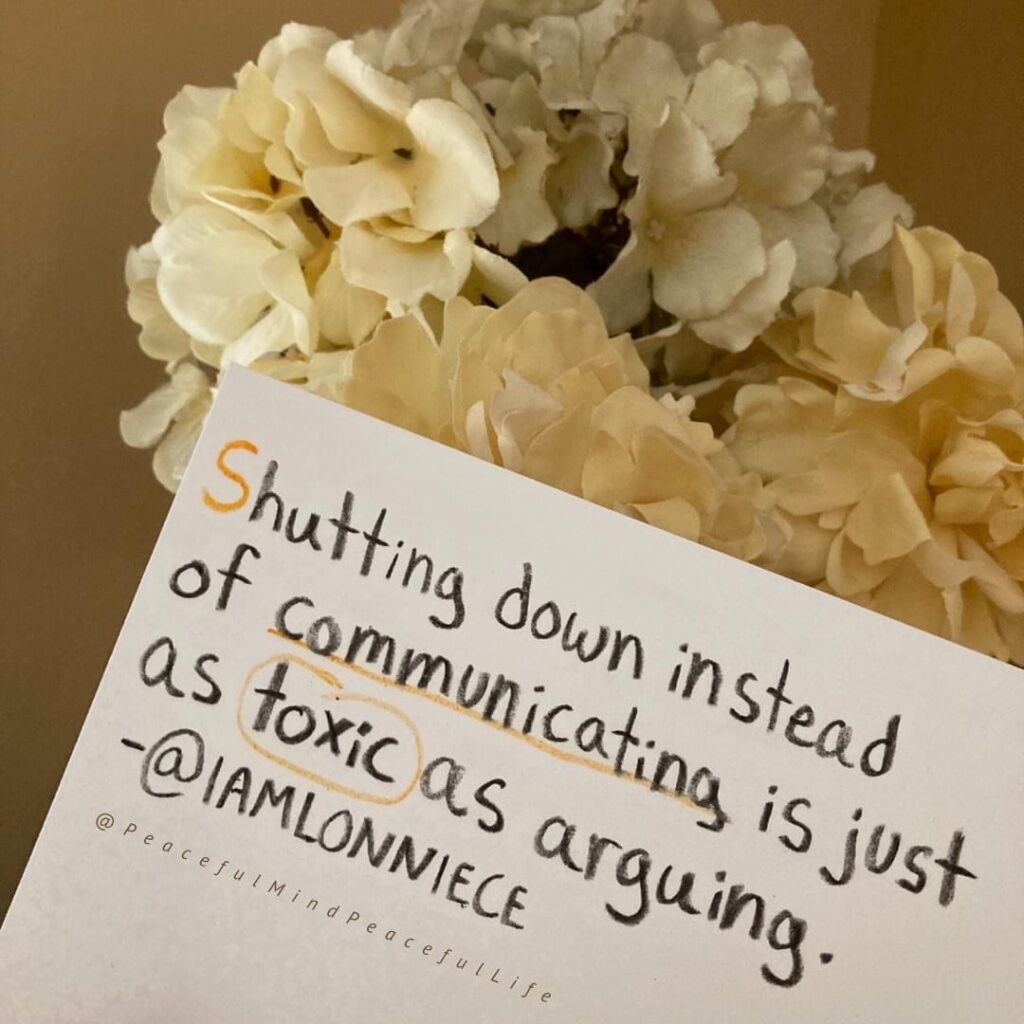 Shutting down instead
of communicating is just
as toxic as arguing.
-@IAMLONNIECE
@PeacefulMindPeacefulLife